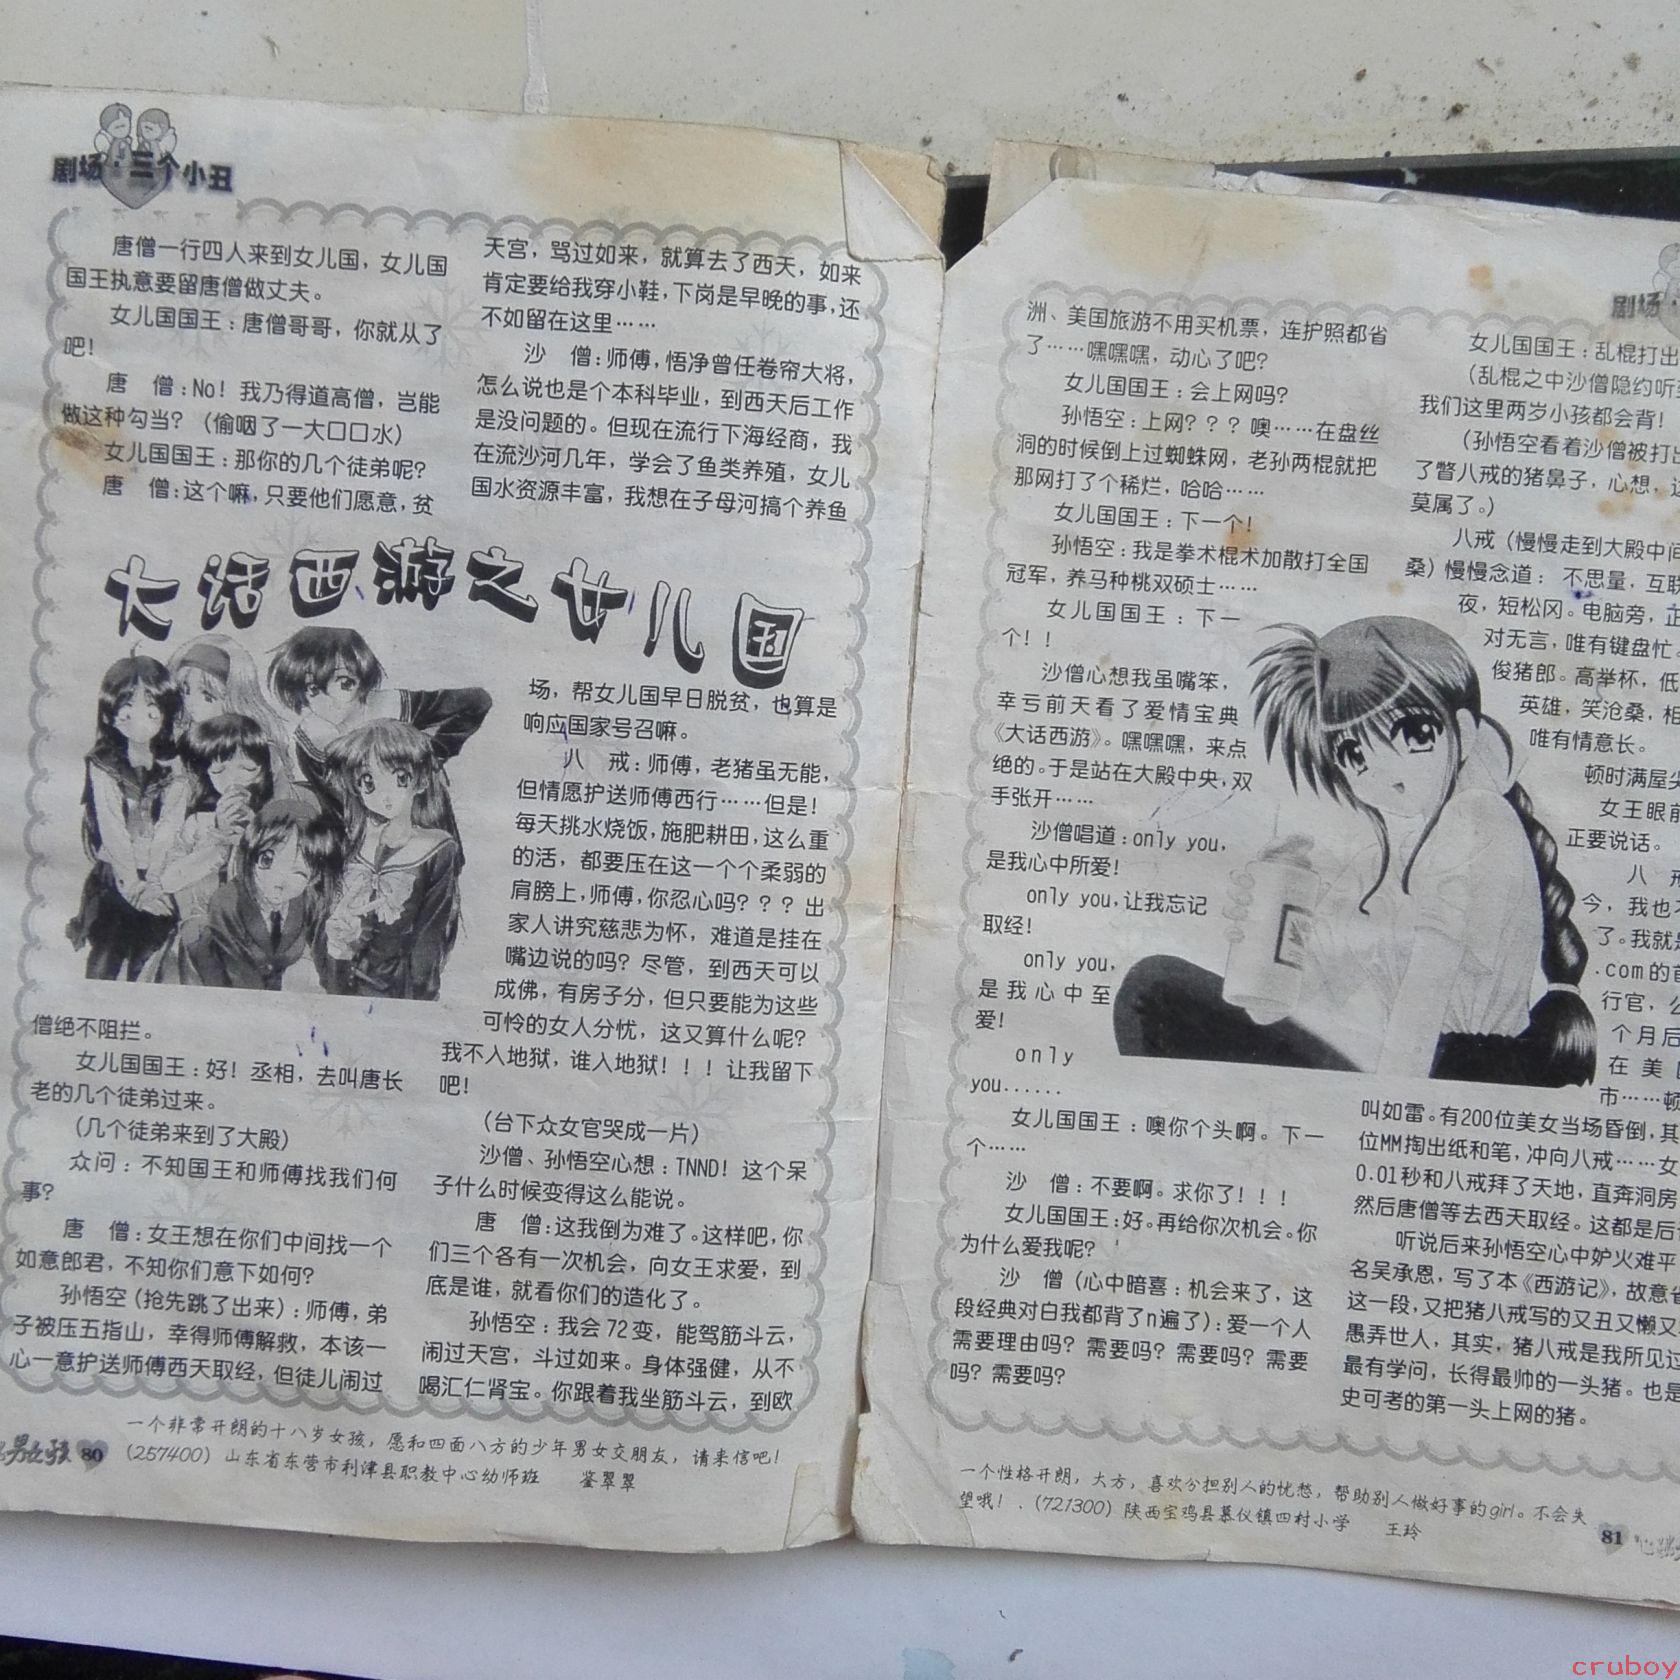 剧场·三个小丑
唐僧一行四人来到女儿国，女儿国
国王执意要留唐僧做丈夫。
女儿国国王：唐僧哥哥，你就从了
吧！
唐　僧：No！我乃得道高僧，岂能
做这种勾当？（偷咽了一大口口水）
女儿国国王：那你的几个徒弟呢？
唐　僧：这个嘛，只要他们愿意，贫
大话西游之女儿国
僧绝不阻拦。
女儿国国王：好！丞相，去叫唐长
老的几个徒弟过来。
（几个徒弟来到了大殿）
众问：不知国王和师傅找我们何
事？
唐　僧：女王想在你们中间找一个
如意郎君，不知你们意下如何？
孙悟空（抢先跳了出来）：师傅，弟
子被压五指山，幸得师傅解救，本该一
心一意护送师傅西天取经，但徒儿闹过
天宫，骂过如来，就算去了西天，如来
肯定要给我穿小鞋，下岗是早晚的事，还
不如留在这里……
沙　僧：师傅，悟净曾任卷帘大将，
怎么说也是个本科毕业，到西天后工作
是没问题的。但现在流行下海经商，我
在流沙河几年，学会了鱼类养殖，女儿
国水资源丰富，我想在子母河搞个养鱼
场，帮女儿国早日脱贫，也算是
响应国家号召嘛。
八　戒：师傅，老猪虽无能，
但情愿护送师傅西行……但是！
每天挑水烧饭，施肥耕田，这么重
的活，都要压在这一个个柔弱的
肩膀上，师傅，你忍心吗？？？出
家人讲究慈悲为怀，难道是挂在
嘴边说的吗？尽管，到西天可以
成佛，有房子分，但只要能为这些
可怜的女人分忧，这又算什么呢？
我不入地狱，谁入地狱！！！让我留下
吧！
（台下众女官哭成一片）
沙僧、孙悟空心想：TNND！这个呆
子什么时候变得这么能说。
唐　僧：这我倒为难了。这样吧，你
们三个各有一次机会，向女王求爱，到
底是谁，就看你们的造化了。
孙悟空：我会72变，能驾筋斗云，
闹过天宫，斗过如来。身体强健，从不
喝汇仁肾宝。你跟着我坐筋斗云，到欧
男女孩 80
一个非常开朗的十八岁女孩，愿和四面八方的少年男女交朋友，请来信吧！
（257400）山东省东营市利津县职教中心幼师班　　翠翠
剧场
洲、美国旅游不用买机票，连护照都省
了……嘿嘿嘿，动心了吧？
女儿国国王：会上网吗？
孙悟空：上网？？？噢……在盘丝
洞的时候倒上过蜘蛛网，老孙两棍就把
那网打了个稀烂，哈哈……
女儿国国王：下一个！
孙悟空：我是拳术棍术加散打全国
冠军，养马种桃双硕士……
女儿国国王：下一
个！！
沙僧心想我虽嘴笨，
幸亏前天看了爱情宝典
《大话西游》。嘿嘿嘿，来点
绝的。于是站在大殿中央，双
手张开……
沙僧唱道：only you，
是我心中所爱！
only you，让我忘记
取经！
only you，
是我心中至
爱！
only
you......
女儿国国王：噢你个头啊。下一
个……
沙　僧：不要啊。求你了！！！
女儿国国王：好。再给你次机会。你
为什么爱我呢？
沙　僧（心中暗喜：机会来了，这
段经典对白我都背了n遍了）：爱一个人
需要理由吗？需要吗？需要吗？需要
吗？需要吗？
女儿国国王：乱棍打出
（乱棍之中沙僧隐约听
我们这里两岁小孩都会背！
（孙悟空看着沙僧被打出
了瞥八戒的猪鼻子，心想，
莫属了。）
八戒（慢慢走到大殿中间
桑）慢慢念道：不思量，互联
夜，短松冈。电脑旁，正
对无言，唯有键盘忙。
俊猪郎。高举杯，低
英雄，笑沧桑，相
唯有情意长。
顿时满屋尖
女王眼前
正要说话。
八　戒
今，我也不
了。我就是
.com的首
行官，公
个月后
在美国
市……顿
叫如雷。有200位美女当场昏倒，其
位MM掏出纸和笔，冲向八戒……女
0.01秒和八戒拜了天地，直奔洞房
然后唐僧等去西天取经。这都是后
听说后来孙悟空心中妒火难平
名吴承恩，写了本《西游记》，故意省
这一段，又把猪八戒写的又丑又懒又
愚弄世人，其实，猪八戒是我所见过
最有学问，长得最帅的一头猪。也是
史可考的第一头上网的猪。
一个性格开朗，大方，喜欢分担别人的忧愁，帮助别人做好事的girl。不会失
望哦！.（721300）陕西宝鸡县慕仪镇四村小学　　王玲
81 心跳
cruboy